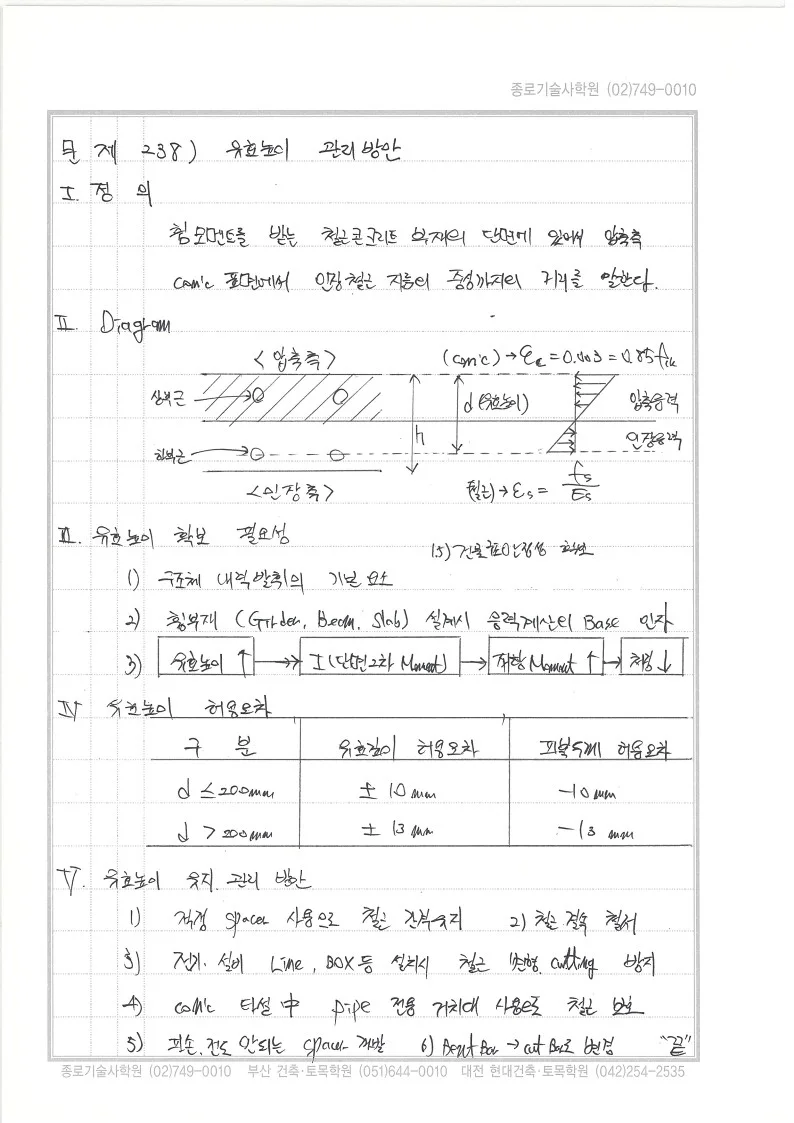 종로기술사학원 (02)749-0010
문제 238) 유효높이 관리방안
I. 정 의
휨모멘트를 받는 철근콘크리트 부재의 단면에 있어서 압축측
con'c 표면에서 인장철근 지름의 중심까지의 거리를 말한다.
II. Diagram
<압축측> (con'c)→εc = 0.003 = 0.85fck
상부근 d (유효높이) 압축응력
h 인장응력
하부근
<인장측> (철근)→εs = fs/Es
III. 유효높이 확보 필요성
1) 구조체 내력발휘의 기본요소 15) 건물 안정성 확보
2) 휨부재 (Girder, Beam, Slab) 설계시 응력계산의 Base 인자
3) 유효높이↑ → I(단면2차 Moment) → 저항 Moment ↑ → 처짐↓
IV 유효높이 허용오차
구 분 유효깊이 허용오차 피복두께 허용오차
d ≤ 200mm ± 10mm -10mm
d > 200mm ± 13mm -13mm
V. 유효높이 유지 관리 방안
1) 적정 Spacer 사용으로 철근 간격유지 2) 철근 결속 철저
3) 전기·설비 Line, BOX등 설치시 철근 변형, cutting 방지
4) con'c 타설 中 pipe 전용 거치대 사용으로 철근 보호
5) 파손, 전도 안되는 Spacer 개발 6) Bent Bar → cut Bar로 변경 "끝"
종로기술사학원 (02)749-0010 부산 건축·토목학원 (051)644-0010 대전 현대건축·토목학원 (042)254-2535